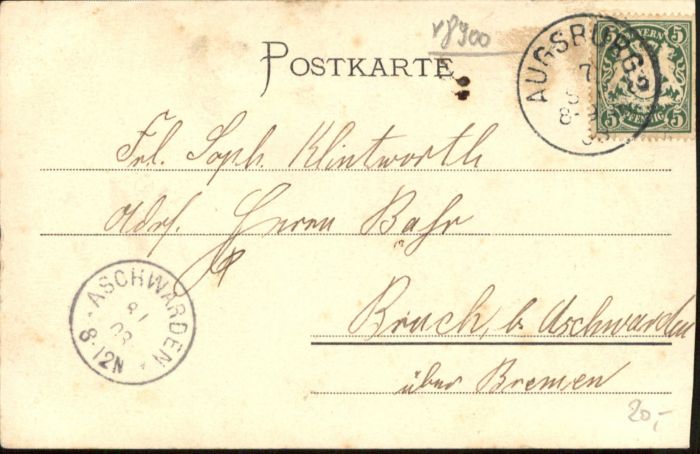 v f 900
POSTKARTE
BAYERN
5 5
5 PFENNIG 5
AUGSBURG 2
7
8-
Frl. Soph. Klintworth
Adr. Herrn Bahr
Bruch, b. Aschwarden
über Bremen
ASCHWARDEN
8 1
03
8-12N
20,-